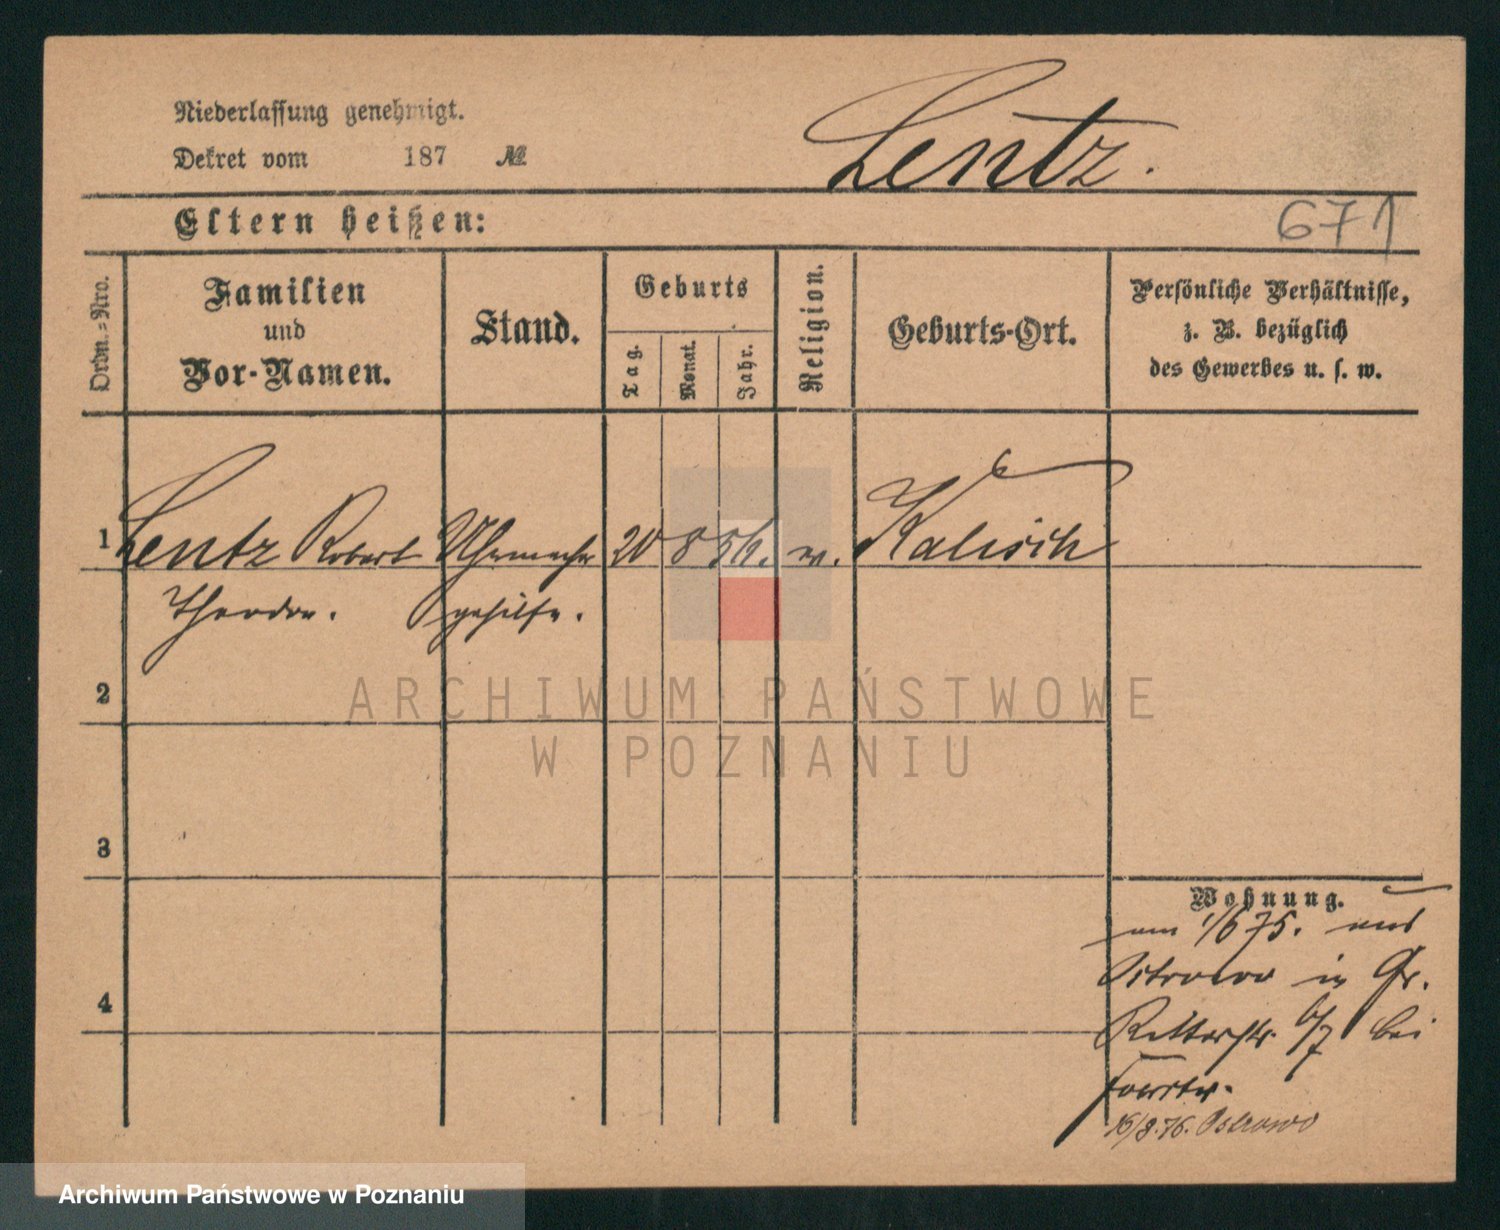 Niederlassung genehmigt.
Dekret vom 187 №
Lentz.
Eltern heißen:
671
Ordn.-Nro.
Familien
und
Vor-Namen.
Stand.
Geburts
Tag.
Monat.
Jahr.
Religion.
Geburts-Ort.
Persönliche Verhältnisse,
z. B. bezüglich
des Gewerbes u. s. w.
1 Lentz Robert Uhrmacher 20 8 54. ev. Kalisch
Theodor. gehilfe.
2
ARCHIWUM PAŃSTWOWE
W POZNANIU
3
Wohnung.
am 1/6 75. aus
Ostrowo in Gr.
Ritterstr. 6/7 bei
Foerster.
4
16/8.76. Ostrowo
Archiwum Państwowe w Poznaniu